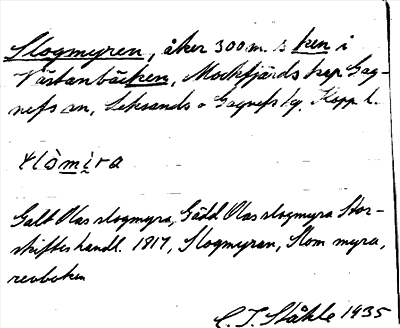 Slogmyren, åker 300 m. s ken i
Västanbäcken, Mockfjärds kap. Gag-
nefs sn, Leksands o Gagnefs tg. Kopp. l.
Galt Olas slogmyra, Gädd Olas slogmyra Stor-
skifteshandl. 1817, Slogmyran, Slom myra,
revboken
C. I. Ståhle 1935